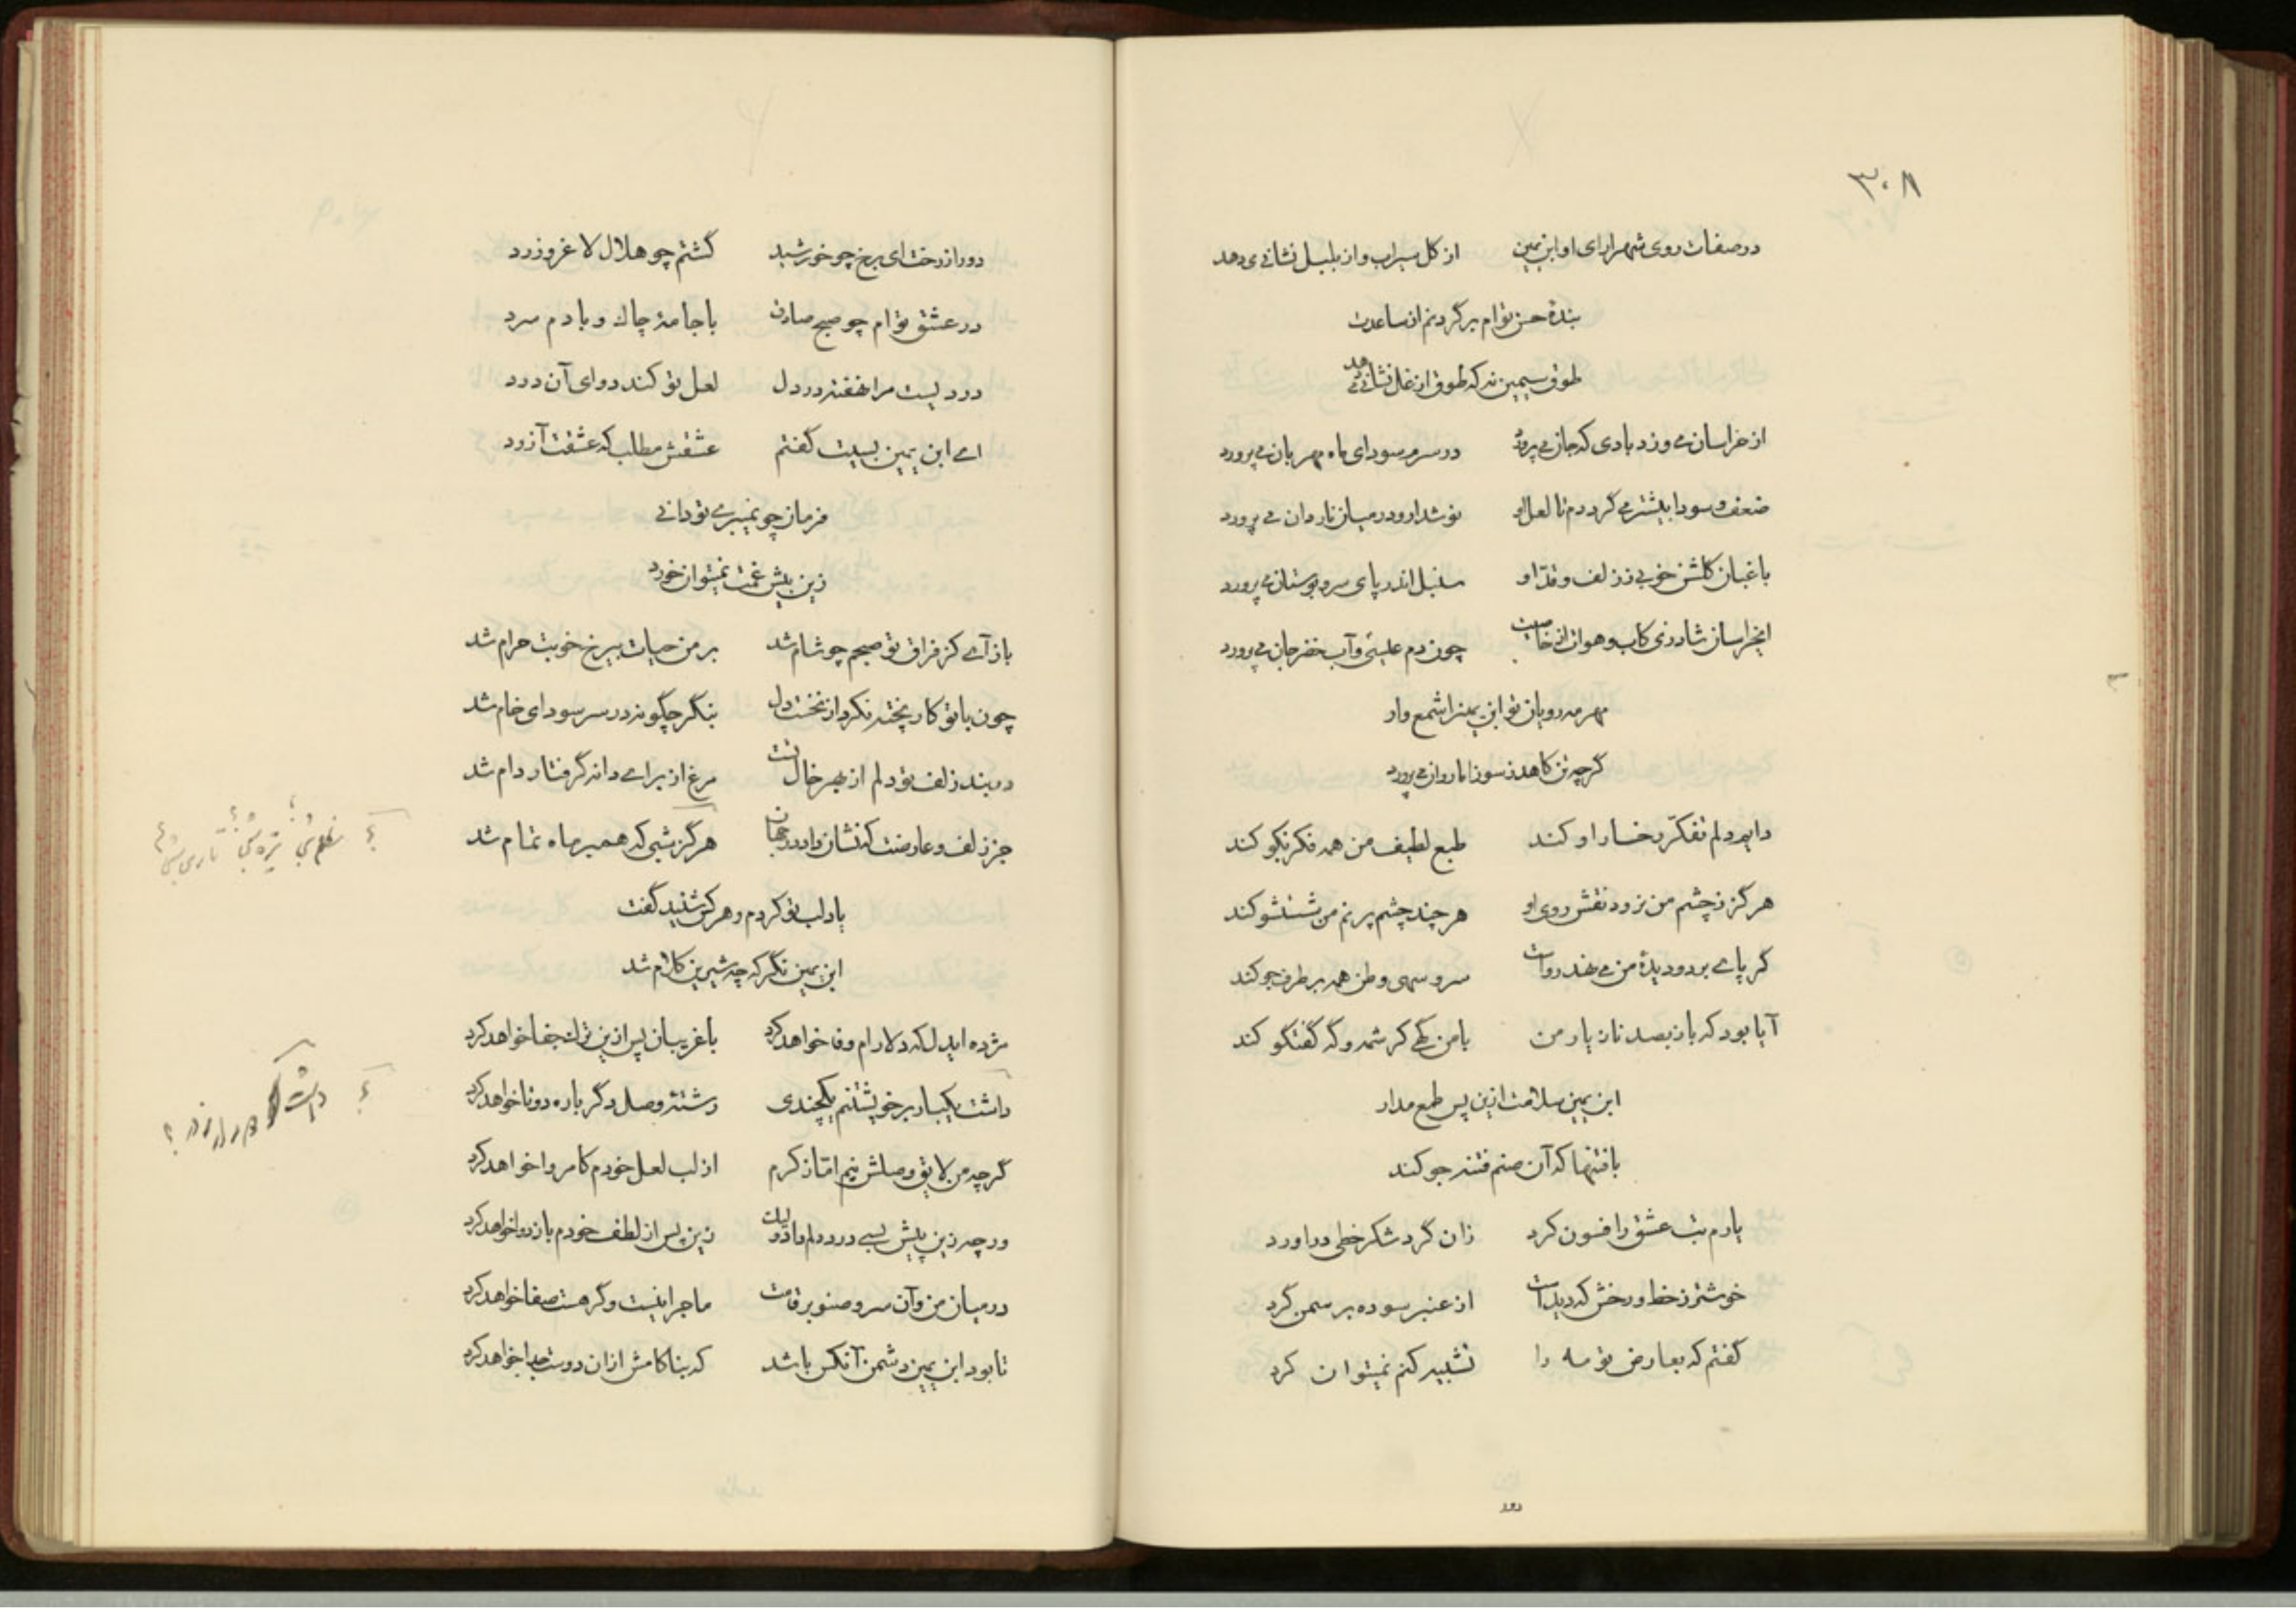 ۳۰۸
در صفات روی شهرارای او ابن یمین از گل سیراب و از بلبل نشانی دهد
بندهٔ حسن توام بر گردنم از ساعدت
طوق سیمین نه که طوق از غل نشانی می دهد
از خراسان می وزد بادی که جان می پرورد در سرم سودای ماه مهربان می پرورد
ضعف و سودا بیشتر می گرددم تا لعل او نوشدارو در میان ناردان می پرورد
باغبان گلشن خوبی ز زلف و قدّ او سنبل اندر پای سرو بوستان می پرورد
ایخراسان شاد زی کاب و هوات از خاصیت چون دم عیسی و آب خضر جان می پرورد
مهر مه رویان تو ابن یمین را شمع وار
گرچه تن کاهد ز سوز اما روان می پرورد
دایم دلم تفکّر رخسار او کند طبع لطیف من همه فکر نکو کند
هرگز ز چشم من نرود نقش روی او هر چند چشم پر نم من شستشو کند
گر پای بر دو دیدهٔ من می نهد رواست سرو سهی وطن همه بر طرف جو کند
آیا بود که باز بصد ناز یار من با من گهی کرشمه و گه گفتگو کند
ابن یمین سلامت ازین پس طمع مدار
با فتنها که آن صنم فتنه جو کند
یارم بت عشق را فسون کرد زان گرد شکر خطی دراورد
خوشتر ز خط و رخش که دیدست از عنبر سوده بر سمن گرد
گفتم که بعارض تو مه را تشبیه کنم نمیتوان کرد
دور
دور از رخت ای برخ چو خورشید گشتم چو هلال لاغر و زرد
در عشق توام چو صبح صادق با جامهٔ چاک و با دم سرد
دردیست مرا نهفته در دل لعل تو کند دوای آن درد
ای ابن یمین بسیت گفتم عشقش مطلب که عشقت آزرد
فرمان چو نمیبری تو دانی
زین بیش غمت نمیتوان خورد
باز آی کز فراق تو صبحم چو شام شد بر من حیات بیرخ خوبت حرام شد
چون با تو کار پخته نکرد از نخست دل بنگر چگونه در سر سودای خام شد
در بند زلف تو دلم از بهر خال تست مرغ از برای دانه گرفتار دام شد
جز زلف و عارضت که نشان داد در جهان هرگز شبی که همبر ماه تمام شد
یاد لب تو کردم و هر کس شنید گفت
ابن یمین نگر که چه شیرین کلام شد
مژده ایدل که دلارام وفا خواهد کرد با غریبان پس ازین ترک جفا خواهد کرد
داشت یکبار بر خویشتنم یکچندی رشتهٔ وصل دگر باره دوتا خواهد کرد
گرچه من لایق وصلش نیم امّا ز کرم از لب لعل خودم کامروا خواهد کرد
ورچه زین پیش بسی درد دلم داد ولیک زین پس از لطف خودم باز دوا خواهد کرد
در میان من و آن سرو صنوبر قامت ماجرا نیست و گر هست صفا خواهد کرد
تا بود ابن یمین دشمن آنکس باشد که بناکامش ازان دوست جدا خواهد کرد